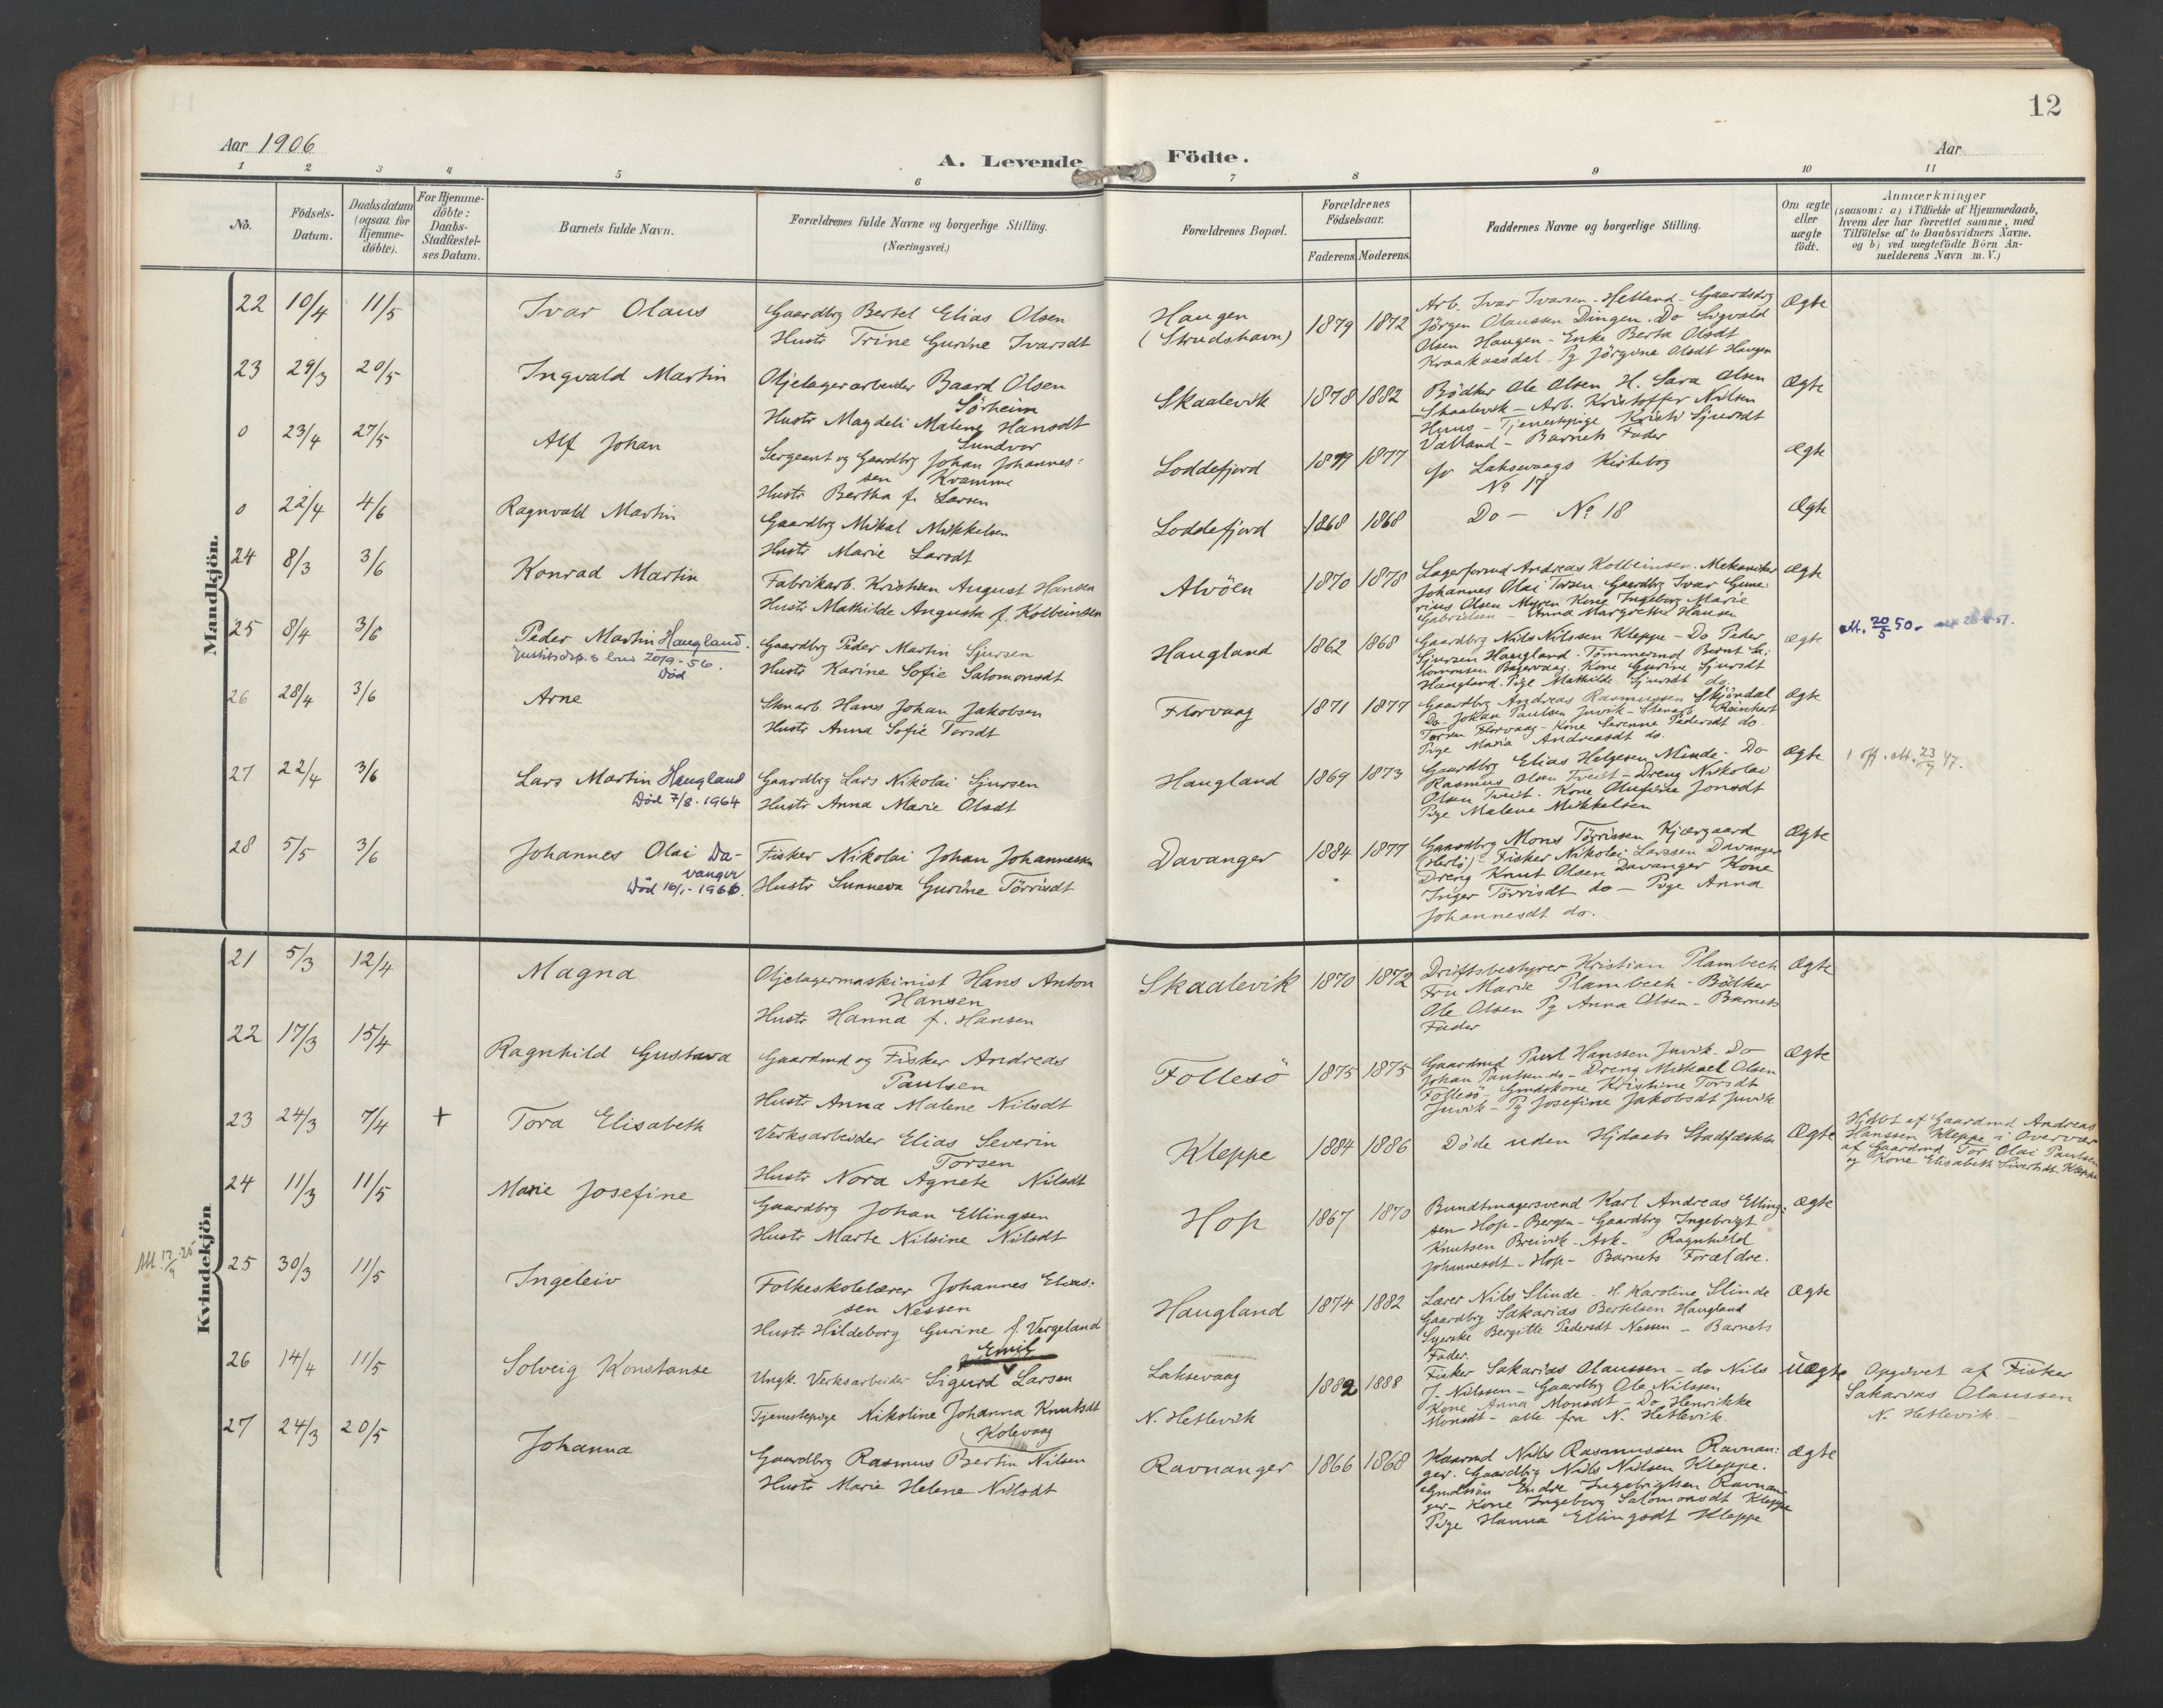 12
Aar 1906
A. Levende
Födte.
Aar
1 2 3 4 5 6 7 8 9 10 11
No.
Födsels-Datum.
Daabsdatum (ogsaa for Hjemme-döbte).
For Hjemme-döbte: Daabs-Stadfæstel-ses Datum.
Barnets fulde Navn.
Forældrenes fulde Navne og borgerlige Stilling.
(Næringsvei.)
Forældrenes Bopæl.
Forældrenes Födselsaar.
Faderens. Moderens.
Faddernes Navne og borgerlige Stilling.
Om ægte eller uægte födt.
Anmærkninger
(saasom: a) i Tilfælde af Hjemmedaab,
hvem der har forrettet samme, med
Tilföielse af to Daabsvidners Navne.
og b) ved uægtefödte Börn An-
melderens Navn m. V.)
Mandkjön.
22 10/4 11/5 Ivar Olaus
Gaardbrg Bertel Elias Olsen
Hustr Trine Gurine Ivarsdt
Haugen
(Strudshavn)
1879 1872
Arb. Ivar Ivarsen Helland - Gaardsbrg
Jörgen Olaussen Dingen. Do Sigvald
Olsen Haugen - Enke Berta Olsdt
Kraakaasdal - Pg Jörgine Olsdt Haugen
Ægte
23 29/3 20/5 Ingvald Martin
Oljelagerarbeider Baard Olsen
Sörheim
Hustr Magdeli Malene Hansdt
Sundvor
Skaalevik 1878 1882
Bödker Ole Olsen H. Sara Olsen
Skaalevik - Arb. Kristoffer Nilsen
Huus - Tjenestepige Kristi Sjursdt
Valland - Barnets Fader
Ægte
0 23/4 27/5 Alf Johan
Sergeant og Gaardbrg Johan Johannes:
sen Kvamme
Hustr Bertha f. Larsen
Loddefjord 1879 1877
Laksevaags Kirkebog
No 17
Ægte
0 22/4 4/6 Ragnvald Martin
Gaardbrg Mikal Mikkelsen
Hustr Marie Larsdt
Loddefjord 1868 1868
Do - No 18
Ægte
24 8/3 3/6 Konrad Martin
Fabrikarb. Kristian August Hansen
Hustr Mathilde Augusta f. Kolbeinsen
Alvöen 1870 1878
Lagerformd Andreas Kolbeinsen. Mekaniker
Johannes Olai Torsen. Gaardbrg Ivar Gune:
rius Olsen Myren Kone Ingeborg Marie
Gabrielsen - Anna Margrethe Hansen
Ægte
25 8/4 3/6 Peder Martin Haugland.
Justitsdep.s brev 20/9-56.
Död
Gaardbrg Peder Martin Sjursen
Hustr Karine Sofie Salomonsdt
Haugland 1862 1868
Gaardbrg Nils Nilssen Kleppe - Do Peder
Sjursen Haugland. Tömmermd Bernt Sa:
lomonsen. Kone Gurine Sjursdt
Haugland. Pige Mathilde Sjursdt do.
Ægte
att. 20/5 50.
26 28/4 3/6 Arne
Stenarb Hans Johan Jakobsen
Hustr Anna Sofie Torsdt
Florvaag 1871 1877
Gaardbrg Andreas Rasmussen Skjöndal
Do. Johan Paulsen Juvik - Stenarb Reinhart
Torsen Florvaag - Kone Severine Pedersdt do.
Pige Maria Andreasdt do.
Ægte
27 22/4 3/6 Lars Martin Haugland
Död 7/8-1964
Gaardbrg Lars Nikolai Sjursen
Hustr Anna Marie Olsdt
Haugland 1869 1873
Gaardbrg Elias Helgesen Minde - Do
Rasmus Olsen Tveit - Dreng Nikolai
Olsen Tveit. Kone Olufine Jonsdt
Pige Malene Mikkelsen
Ægte
1 off. att. 23/7 47.
28 5/5 3/6 Johannes Olai Da-
vanger
Död 16/1-1966.
Fisker Nikolai Johan Johannessen
Hustr Sunneva Gurine Törrisdt
Davanger 1884 1877
Gaardbrg Mons Törrissen Kjærgaard
(Herlö) - Fisker Nikolai Larssen Davanger
Dreng Knut Olsen Davanger Kone
Inger Törrisdt do - Pige Anna
Johannesdt do.
Ægte
Kvindekjön
21 5/3 12/4 Magna
Oljelagermaskinist Hans Anton
Hansen
Hustr Hanna f. Hansen
Skaalevik 1870 1872
Driftsbestyrer Kristian Plambech
Fru Marie Plambech - Bödker
Ole Olsen Pg Anna Olsen - Barnets
Fader
Ægte
22 17/3 15/4 Ragnhild Gustava
Gaardmd og Fisker Andreas
Paulsen
Hustr Anna Malene Nilsdt
Follesö 1875 1875
Gaardmd Paul Hanssen Juvik. Do
Johan Paulsen do - Dreng Mikael Olsen
Follesö - Gmdskone Kristine Torsdt
Juvik - Pg Josefine Jakobsdt Juvik
Ægte
23 24/3 7/4 + Tora Elisabeth
Verksarbeider Elias Severin
Torsen
Hustr Nora Agnete Nilsdt
Kleppe 1884 1886
Döde uden Hjdaabs Stadfæstelse
Ægte
Hjdbt af Gaardmd Andreas
Hanssen Kleppe i Overvær
af Gaardmd Tor Olai Paulsen
og Kone Elisabeth Sivertsdt Kleppe
24 11/3 11/5 Marie Josefine
Gaardbrg Johan Ellingsen
Hustr Marte Nilsine Nilsdt
Hop 1867 1870
Bundtmagersvend Karl Andreas Elling:
sen Hop - Bergen - Gaardbrg Ingebrigt
Knutsen Breivik - Ask - Ragnhild
Johannesdt - Hop - Barnets Forældre.
Ægte
Att. 12/9 25
25 30/3 11/5 Ingeleiv
Folkeskolelærer Johannes Elias:
sen Nessen
Hustr Hildeborg Gurine f. Vergeland
Haugland 1874 1882
Lærer Nils Slinde - H. Karoline Slinde
Gaardbrg Sakarias Bertelsen Haugland
Syerske Bergitte Pedersdt Nessen - Barnets
Fader.
Ægte
26 14/4 11/5 Solveig Konstanse
Emil
Ungk. Verksarbeider Sigurd Larsen
Tjenestepige Nikoline Johanna Knutsdt
Kolevaag
Laksevaag
N. Hetlevik
1882 1888
Fisker Sakarias Olaussen - do Nils
J. Nilssen - Gaardbrg Ole Nilssen
Kone Anna Monsdt - Do Henrikke
Monsdt - alle fra N. Hetlevik.
Uægte
Opgivet af Fisker
Sakarias Olaussen
N. Hetlevik.
27 24/3 20/5 Johanna
Gaardbrg Rasmus Bertin Nilsen
Hustr Marie Helene Nilsdt
Ravnanger 1866 1868
Kaarmd Nils Rasmussen Ravnan:
ger. Gaardbrg Nils Nilsen Kleppe.
Gmdssön Endre Ingebrigtsen Ravnan-
ger - Kone Ingeborg Salomonsdt Kleppe
Pige Hanna Ellingsdt Kleppe
Ægte